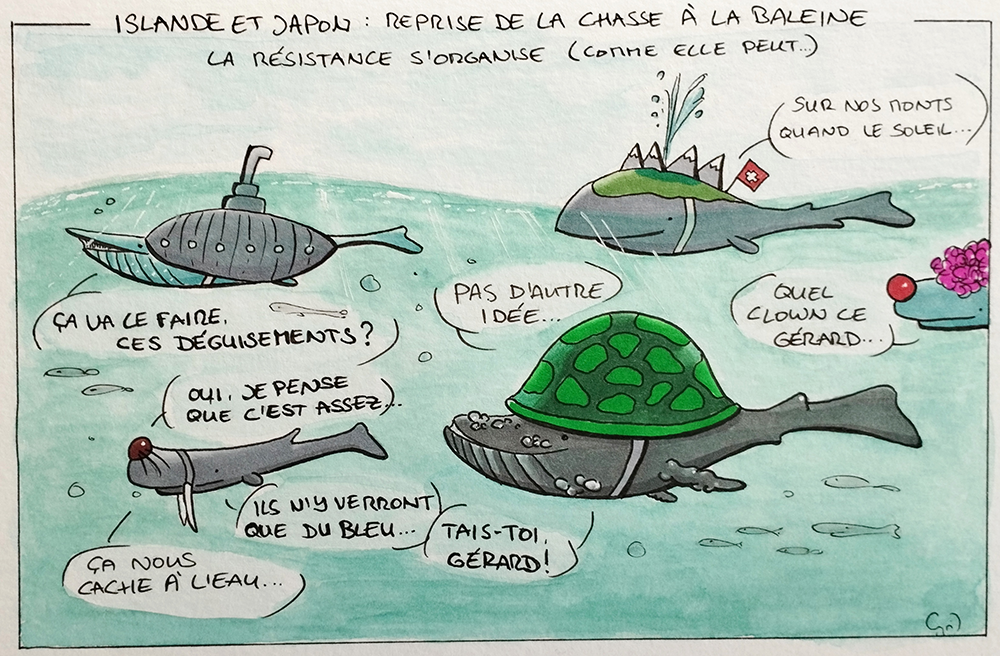 ISLANDE ET JAPON : REPRISE DE LA CHASSE À LA BALEINE
LA RÉSISTANCE S'ORGANISE (COMME ELLE PEUT...)
SUR NOS MONTS
QUAND LE SOLEIL...
ÇA VA LE FAIRE,
CES DÉGUISEMENTS ?
PAS D'AUTRE
IDÉE...
QUEL
CLOWN CE
GÉRARD...
OUI, JE PENSE
QUE C'EST ASSEZ...
ILS N'Y VERRONT
QUE DU BLEU...
TAIS-TOI,
GÉRARD !
ÇA NOUS
CACHE À L'EAU...